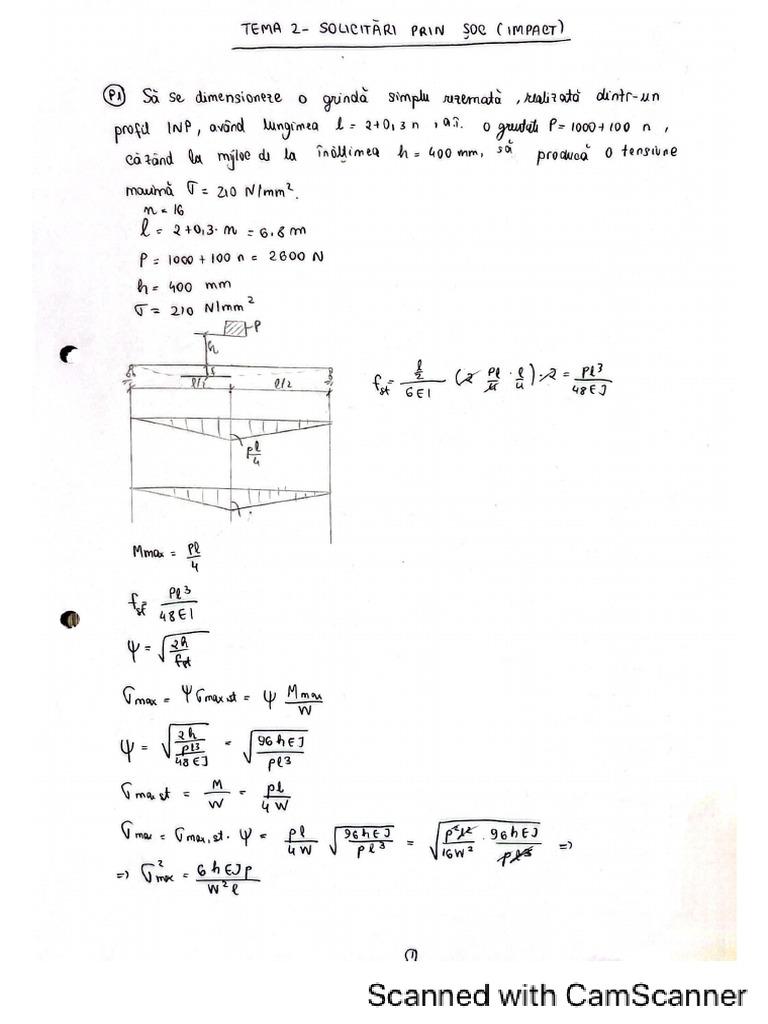 TEMA 2- SOLICITĂRI PRIN ŞOC (IMPACT)
(P1) Să se dimensioneze o grindă simplu rezemată, realizată dintr-un
profil INP, având lungimea l = 2+0,3 n, a.î. o greutate P= 1000+100 n,
căzând la mijloc de la înălțimea h = 400 mm, să producă o tensiune
maximă σ = 210 N/mm².
n = 16
l = 2+0,3·n = 6.8 m
P = 1000+100 n = 2600 N
h = 400 mm
σ = 210 N/mm²
P
h
f
l/2 l/2
f_st = (l/2)/(6EI) (2 Pl/4 · l/4)·2 = Pl³/48EJ
Pl/4
Mmax = Pl/4
f_st = Pl³/48EI
Ψ = √(2h/f_st)
σmax = Ψ σmax,st = Ψ Mmax/W
Ψ = √(2h/(pl³/48EJ)) = √(96hEJ/pl³)
σmax st = M/W = pl/4W
σmax = σmax,st · Ψ = pl/4W √(96hEJ/pl³) = √(p²l²/16W² · 96hEJ/pl³) =>
=> σ²max = 6hEJp/W²l
(1)
Scanned with CamScanner